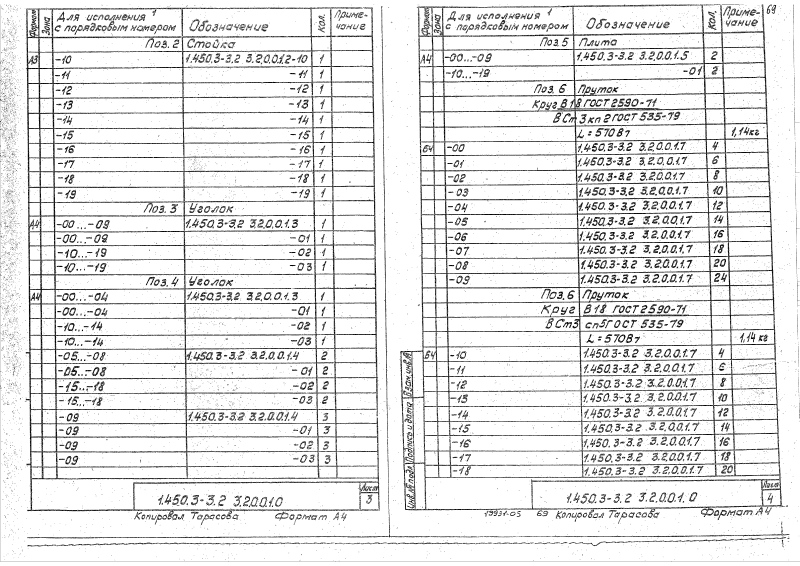 Формат Зона Для исполнения 1 с порядковым номером Обозначение Кол. Приме-чание
Поз. 2 Стойка
А3 -10 1.450.3-3.2 3.2.0.0.1.2-10 1
-11 -11 1
-12 -12 1
-13 -13 1
-14 -14 1
-15 -15 1
-16 -16 1
-17 -17 1
-18 -18 1
-19 -19 1
Поз. 3 Уголок
А4 -00...-09 1.450.3-3.2 3.2.0.0.1.3 1
-00...-09 -01 1
-10...-19 -02 1
-10...-19 -03 1
Поз. 4 Уголок
А4 -00...-04 1.450.3-3.2 3.2.0.0.1.3 1
-00...-04 -01 1
-10...-14 -02 1
-10...-14 -03 1
-05...-08 1.450.3-3.2 3.2.0.0.1.4 2
-05...-08 -01 2
-15...-18 -02 2
-15...-18 -03 2
-09 1.450.3-3.2 3.2.0.0.1.4 3
-09 -01 3
-09 -02 3
-09 -03 3
1.450.3-3.2 3.2.0.0.1.0
Лист
3
Копировал Тарасова Формат А4
69
Формат Зона Для исполнения 1 с порядковым номером Обозначение Кол. Приме-чание
Поз. 5 Плита
А4 -00...-09 1.450.3-3.2 3.2.0.0.1.5 2
-10...-19 -01 2
Поз. 6 Пруток
Круг В 18 ГОСТ 2590-71
В Ст 3 кп 2 ГОСТ 535-79
L = 570 Вт 1,14 кг
Б4 -00 1.450.3-3.2 3.2.0.0.1.7 4
-01 1.450.3-3.2 3.2.0.0.1.7 6
-02 1.450.3-3.2 3.2.0.0.1.7 8
-03 1.450.3-3.2 3.2.0.0.1.7 10
-04 1.450.3-3.2 3.2.0.0.1.7 12
-05 1.450.3-3.2 3.2.0.0.1.7 14
-06 1.450.3-3.2 3.2.0.0.1.7 16
-07 1.450.3-3.2 3.2.0.0.1.7 18
-08 1.450.3-3.2 3.2.0.0.1.7 20
-09 1.450.3-3.2 3.2.0.0.1.7 24
Поз. 6 Пруток
Круг В 18 ГОСТ 2590-71
В Ст3 сп5 ГОСТ 535-79
L = 570 Вт 1,14 кг
Б4 -10 1.450.3-3.2 3.2.0.0.1.7 4
-11 1.450.3-3.2 3.2.0.0.1.7 6
-12 1.450.3-3.2 3.2.0.0.1.7 8
-13 1.450.3-3.2 3.2.0.0.1.7 10
-14 1.450.3-3.2 3.2.0.0.1.7 12
-15 1.450.3-3.2 3.2.0.0.1.7 14
-16 1.450.3-3.2 3.2.0.0.1.7 16
-17 1.450.3-3.2 3.2.0.0.1.7 18
-18 1.450.3-3.2 3.2.0.0.1.7 20
Инв.№ подл. Подпись и дата Взам.инв.№
1.450.3-3.2 3.2.0.0.1.0
Лист
4
19931-05 69 Копировал Тарасова Формат А4